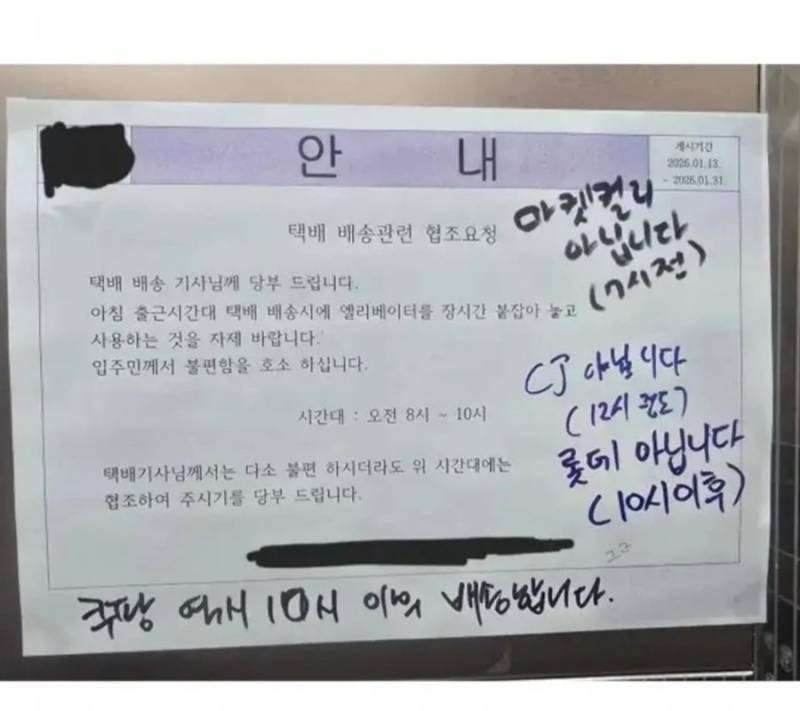 안 내
게시기간
2026.01.13.
~ 2026.01.31.
택배 배송관련 협조요청
택배 배송 기사님께 당부 드립니다.
아침 출근시간대 택배 배송시에 엘리베이터를 장시간 붙잡아 놓고
사용하는 것을 자제 바랍니다.
입주민께서 불편함을 호소 하십니다.
시간대 : 오전 8시 ~ 10시
택배기사님께서는 다소 불편 하시더라도 위 시간대에는
협조하여 주시기를 당부 드립니다.
마켓컬리
아닙니다
(7시전)
CJ 아닙니다
(12시 정도)
롯데 아닙니다
(10시이후)
ㄱㄱ
쿠팡 역시 10시 이후 배송합니다.